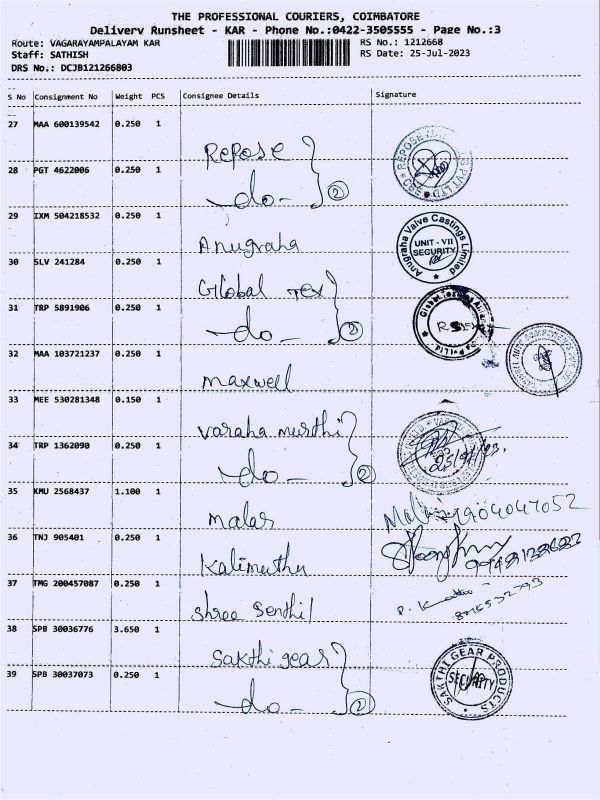 THE PROFESSIONAL COURIERS, COIMBATORE
Delivery Runsheet - KAR - Phone No.:0422-3505555 - Page No.:3
Route: VAGARAYAMPALAYAM KAR RS No.: 1212668
Staff: SATHISH RS Date: 25-Jul-2023
DRS No.: DCJB121266803
S No Consignment No Weight PCS Consignee Details Signature
27 MAA 600139542 0.250 1 Repose
28 PGT 4622006 0.250 1 -do- 2
29 IXM 504218532 0.250 1 Anugraha Anugraha Valve Castings Limited UNIT - VII SECURITY
30 SLV 241284 0.250 1 Global Tex
31 TRP 5891906 0.250 1 -do- 2
32 MAA 103721237 0.250 1 Maxwell
33 MEE 530281348 0.150 1 Varaha murthi
34 TRP 1362090 0.250 1 -do- 2
35 KMU 2568437 1.100 1 malar
36 TNJ 905401 0.250 1 Kalimuthu
37 TMG 200457087 0.250 1 Shree Senthil
38 SPB 30036776 3.650 1 Sakthi gear SAKTHI GEAR PRODUCTS SECURITY
39 SPB 30037073 0.250 1 -do- 2